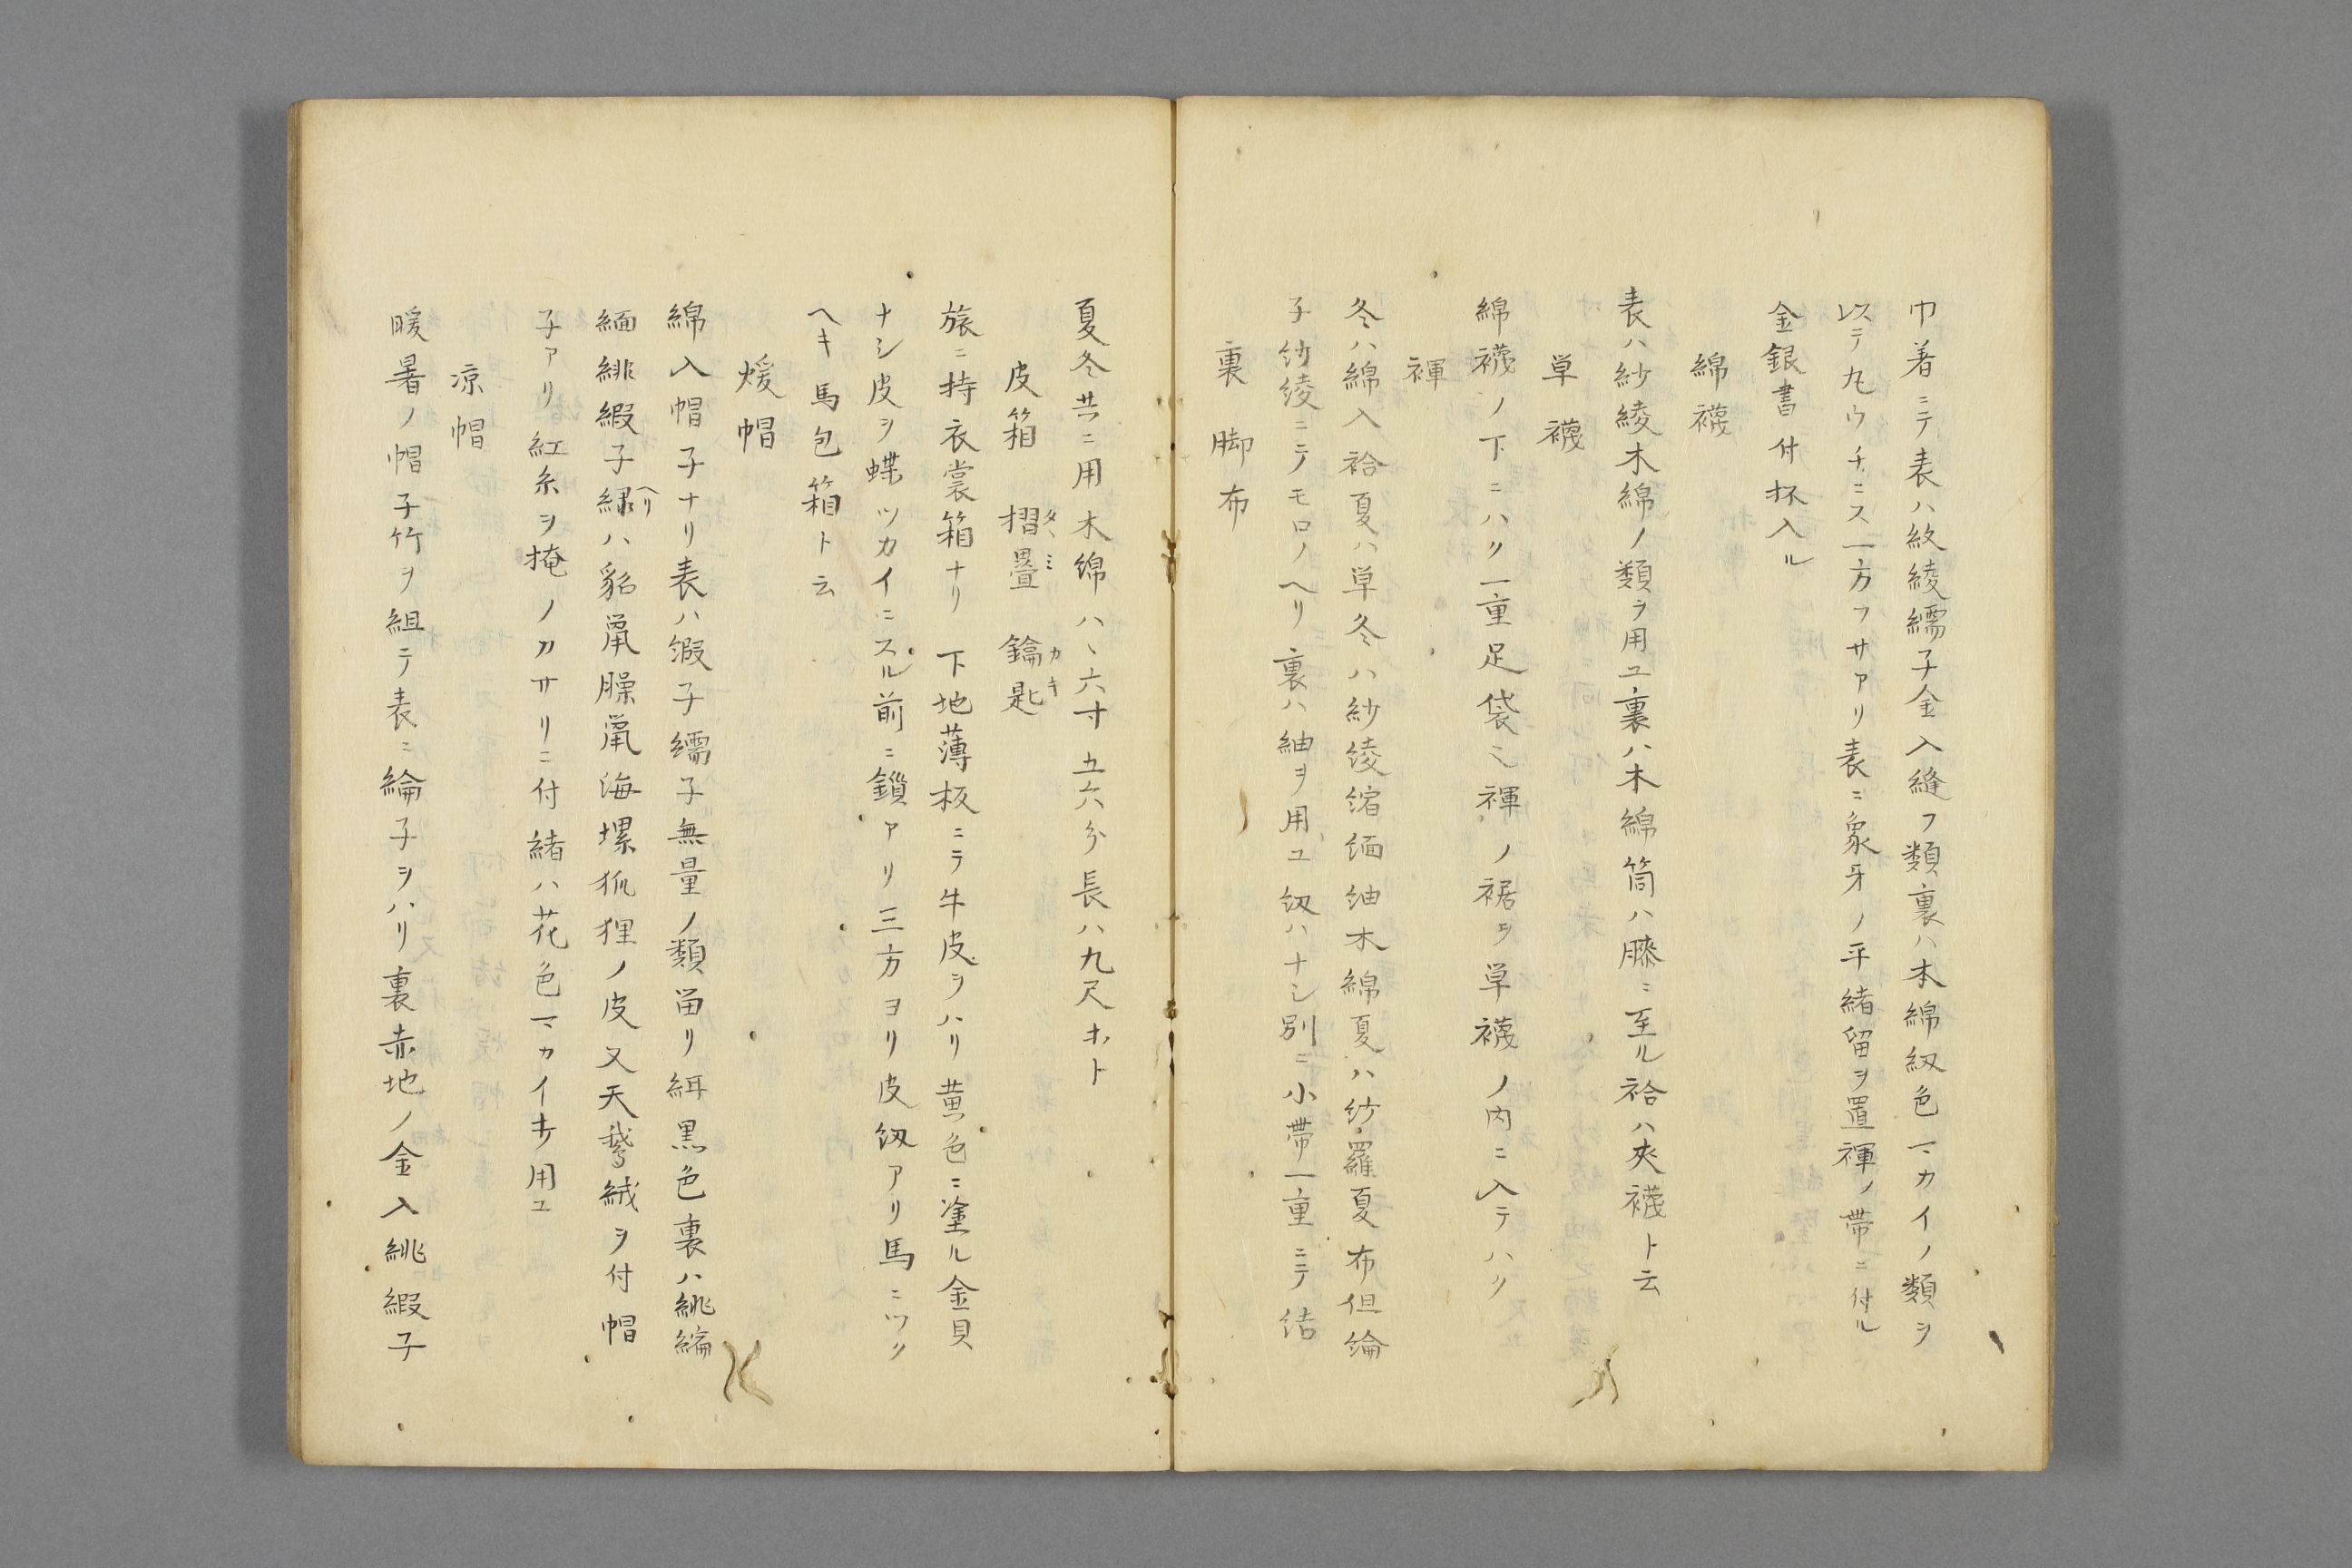 巾着ニテ表ハ紋綾繻子金入縫フ類裏ハ木綿紐色マカイノ類ヲ
以テ丸ウチニス一方フサアリ表ニ象牙ノ平緒留ヲ置褌ノ帯ニ付ル
金銀書付杯入ル
綿襪
表ハ紗綾木綿ノ類ヲ用ユ裏ハ木綿筒ハ膝ニ至ル袷ハ夾襪ト云
単襪
綿襪ノ下ニハク一重足袋也褌ノ裾ヲ単襪ノ内ニ入テハク
褌
冬ハ綿入袷夏ハ単冬ハ紗綾縮緬紬木綿夏ハ紗羅夏布但綸
子紗綾ニテモロノヘリ裏ハ紬ヲ用ユ紐ハナシ別ニ小帯一重ニテ結
裏脚布
夏冬共ニ用木綿ハヽ六寸五六分長ハ九尺ホト
皮箱 摺畳タヽミ 鑰匙カキ
旅ニ持衣裳箱ナリ下地薄板ニテ牛皮ヲハリ黄色ニ塗ル金貝
ナシ皮ヲ蝶ツカイニスル前ニ鎖アリ三方ヨリ皮紐アリ馬ニツク
ヘキ馬包箱ト云
煖帽
綿入帽子ナリ表ハ緞子繻子無量ノ類留リ絹黒色裏ハ絖綸
緬緋緞子繍ヘリハ貂鼠臊鼠海螺狐狸ノ皮又天鵞絨ヲ付帽
子アリ紅糸ヲ掩ノカサリニ付緒ハ花色マカイキ用ユ
涼帽
暖暑ノ帽子竹ヲ組テ表ニ綸子ヲハリ裏赤地ノ金入絖緞子